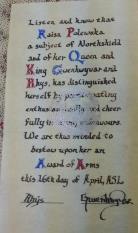 Listen and know that
Raisa Polewska
a subject of Northshield
and of her Queen and
King Gwenhwyvar and
Rhys, has distinguished
herself by participating
enthusiastically and cheer
fully in many endeavours.
We are thus minded to
bestow upon her an
Award of Arms
this 16th day of April, ASL
Rhys Gwenhwyvar